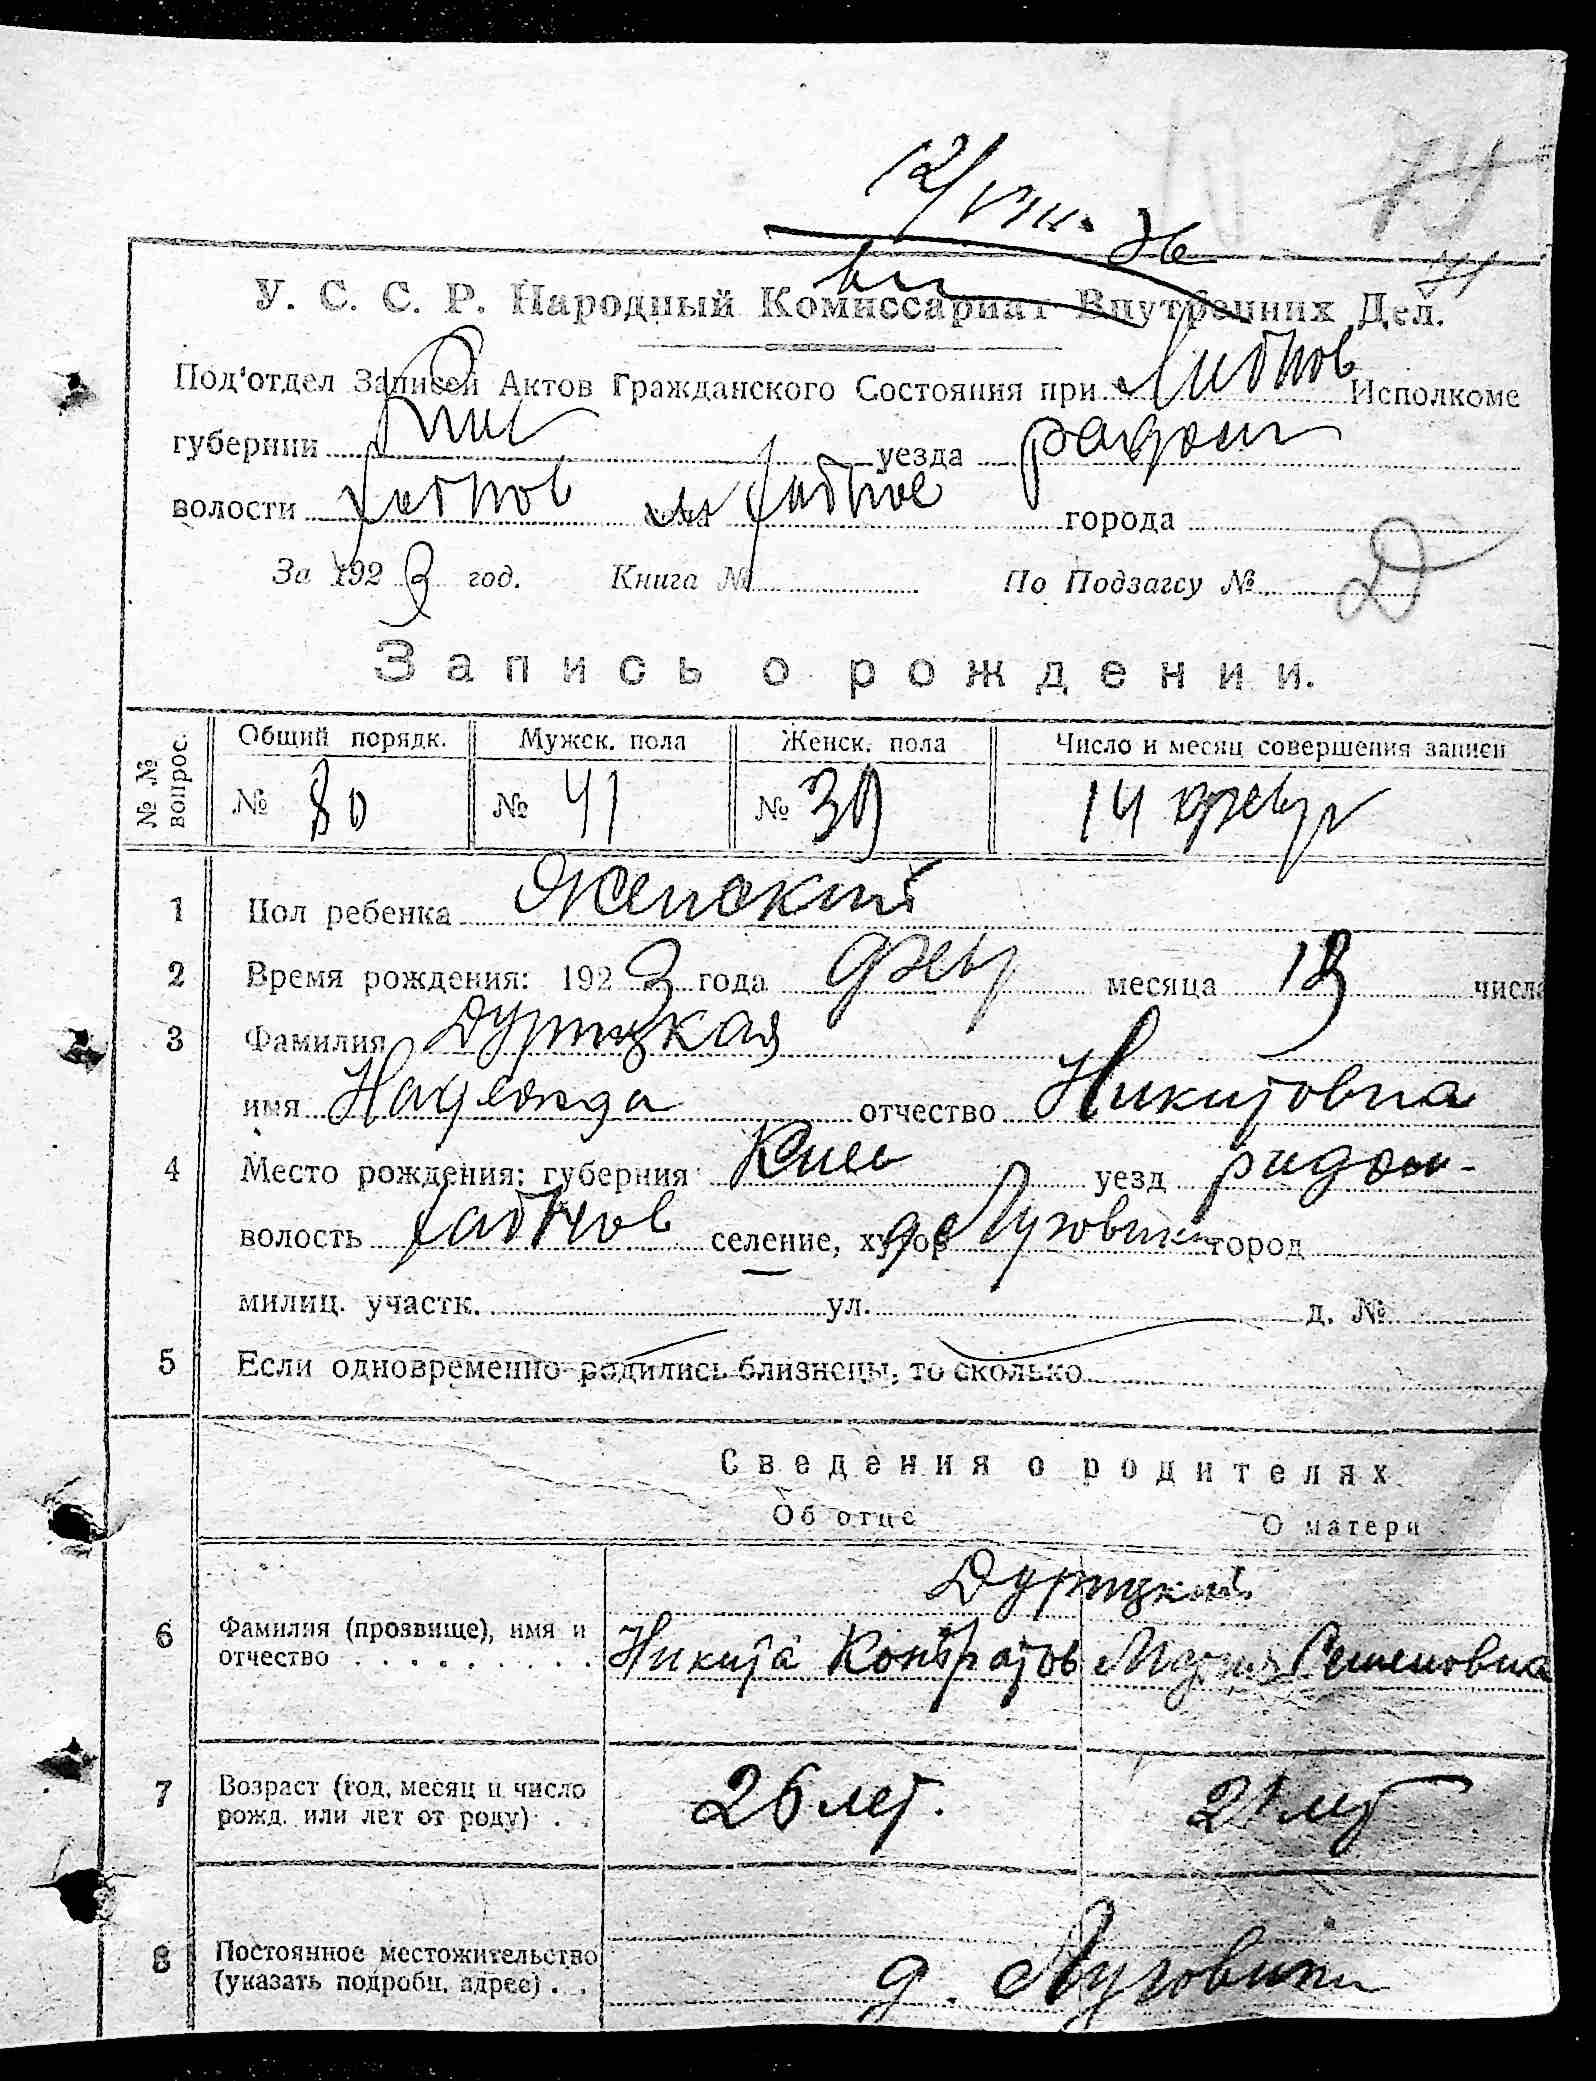 12/VIII 26
У. С. С. Р. Народный Комиссариат Внутренних Дел.
Под'отдел Записей Актов Гражданского Состояния при Хабнов Исполкоме
губернии Киев уезда радом
волости Хабнов Хабное города
За 1923 год. Книга № По Подзагсу №
Запись о рождении.
№ № вопрос. Общий порядк. Мужск. пола Женск. пола Число и месяц совершения записи
№ 80 № 41 № 39 14 февр
1 Пол ребенка Женский
2 Время рождения: 1923 года февр месяца 13 числа
3 Фамилия Дурицкая
имя Надежда отчество Никитовна
4 Место рождения: губерния Киев уезд радом
волость Хабнов селение, хутор д Луговики город
милиц. участк. ул. д. №
5 Если одновременно родились близнецы, то сколько
Сведения о родителях
Об отце О матери
Дурицкий
6 Фамилия (прозвище), имя и отчество Никита Кондратов Мария Семеновна
7 Возраст (год, месяц и число рожд. или лет от роду) 26 лет. 21 лет
8 Постоянное местожительство (указать подробн. адрес) д. Луговики